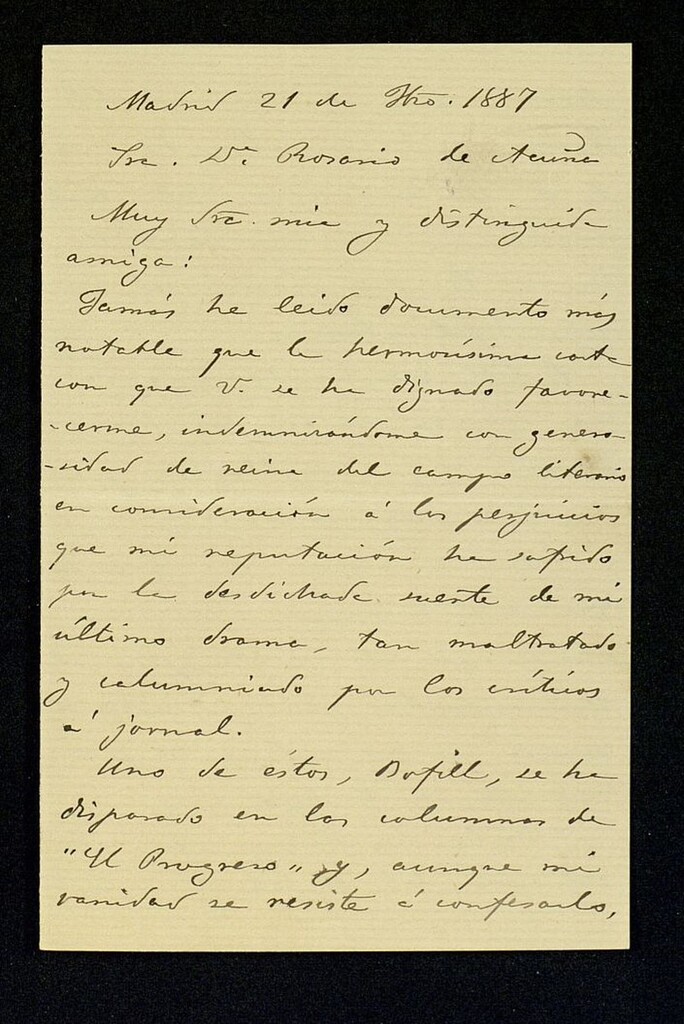 Madrid 21 de Hro. 1887
Sra. Dª. Rosario de Acuña
Muy Sra. mia y distinguida
amiga:
Jamás he leido documento más
notable que la hermosísima carta
con que V. se ha dignado favore-
-cerme, indemnizándome con genero-
-sidad de reina del campo literario
en consideración á los perjuicios
que mi reputación ha sufrido
por la desdichada suerte de mi
último drama, tan maltratado
y calumniado por los críticos
á jornal.
Uno de éstos, Bofill, se ha
disparado en las columnas de
"El Progreso" y, aunque mi
vanidad se resiste á confesarlo,